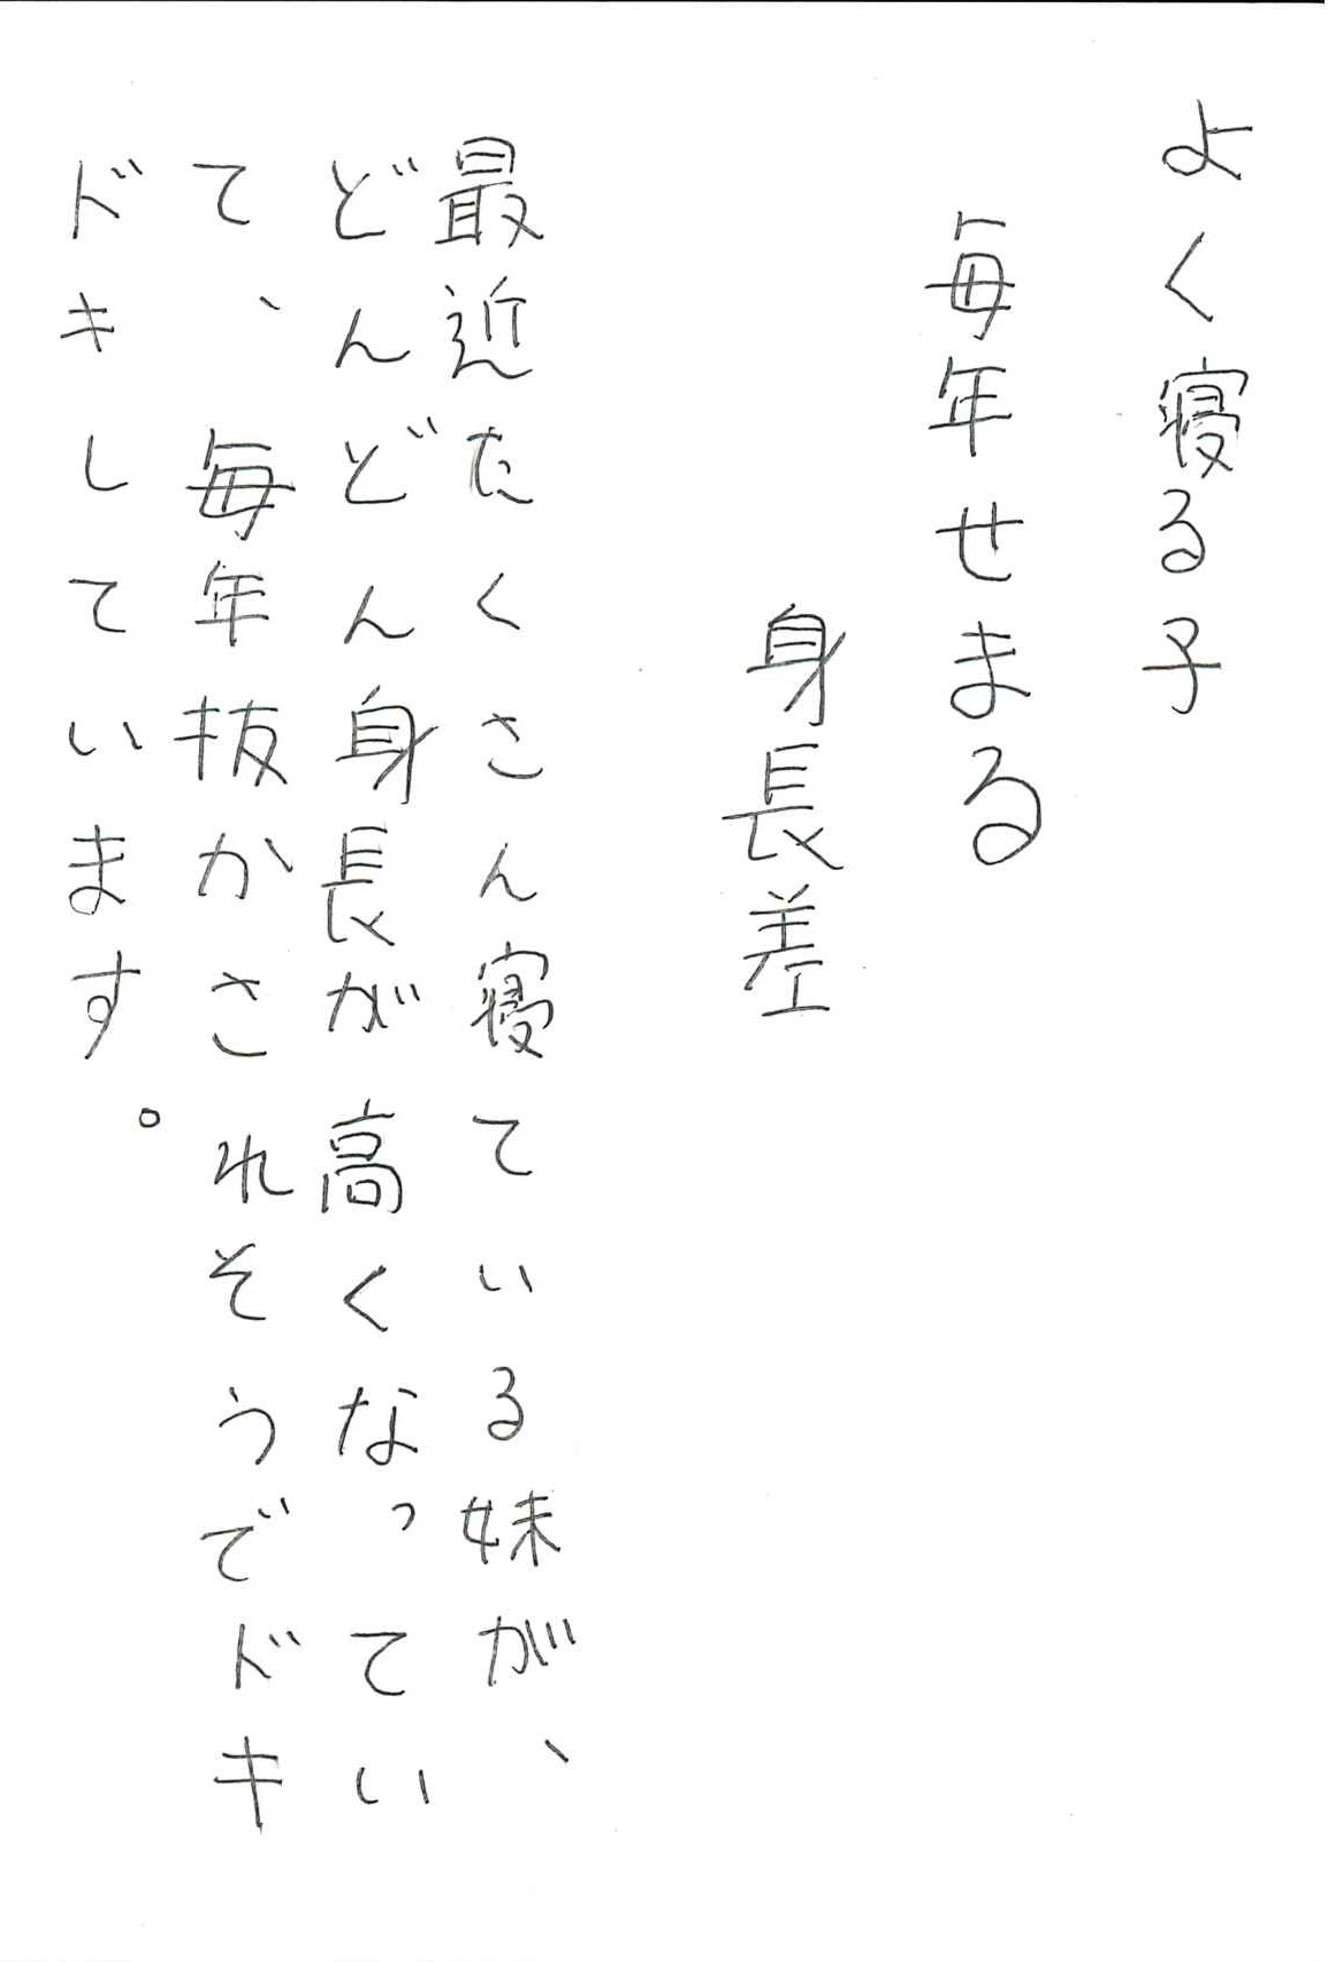 よく寝る子
毎年せまる
身長差
最近たくさん寝ている妹が、
どんどん身長が高くなってい
て、毎年抜かされそうでドキ
ドキしています。